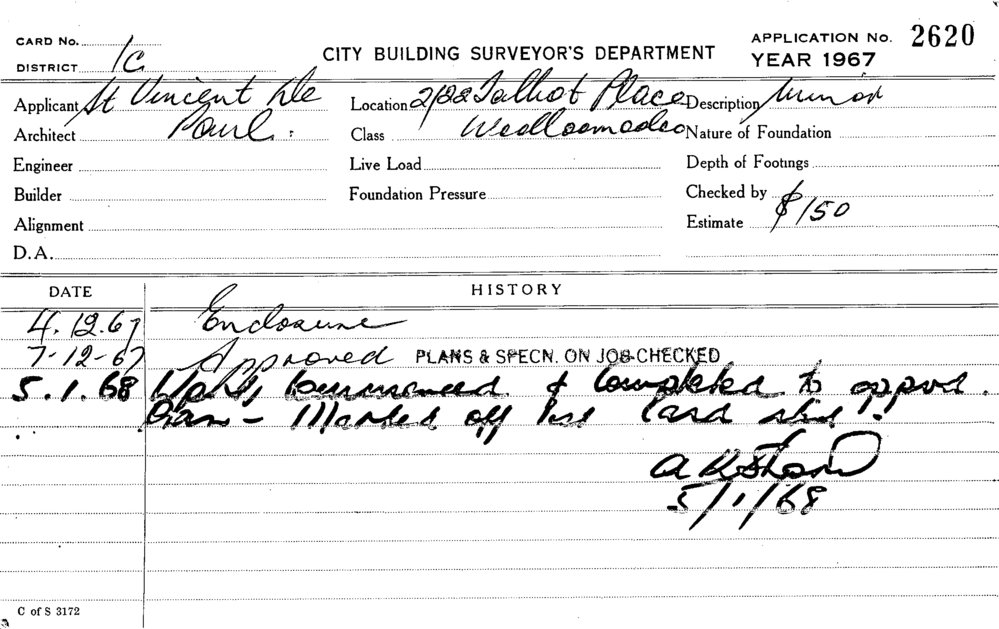 CARD No.
DISTRICT 1C
CITY BUILDING SURVEYOR'S DEPARTMENT
APPLICATION No. 2620
YEAR 1967
Applicant St Vincent de
Location 2/22 Talbot Place
Description Minor
Architect Paul.
Class Woolloomooloo
Nature of Foundation
Engineer
Live Load
Depth of Footings
Builder
Foundation Pressure
Checked by
Alignment
Estimate $150
D.A.
DATE HISTORY
4.12.67 Enclosure
7-12-67 Approved PLANS & SPECN. ON JOB CHECKED
5.1.68 commenced & completed to approd.
Plan - Marked off list Card
5/1/68
C of S 3172